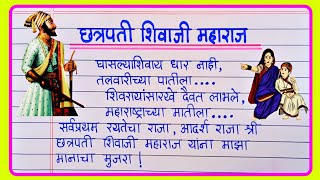 छत्रपती शिवाजी महाराज
घासल्याशिवाय धार नाही,
तलवारीच्या पातीला....
शिवरायांसारखे दैवत लाभले,
महाराष्ट्राच्या मातीला....
सर्वप्रथम रयतेचा राजा, आदर्श राजा श्री
छत्रपती शिवाजी महाराज यांना माझा
मानाचा मुजरा!